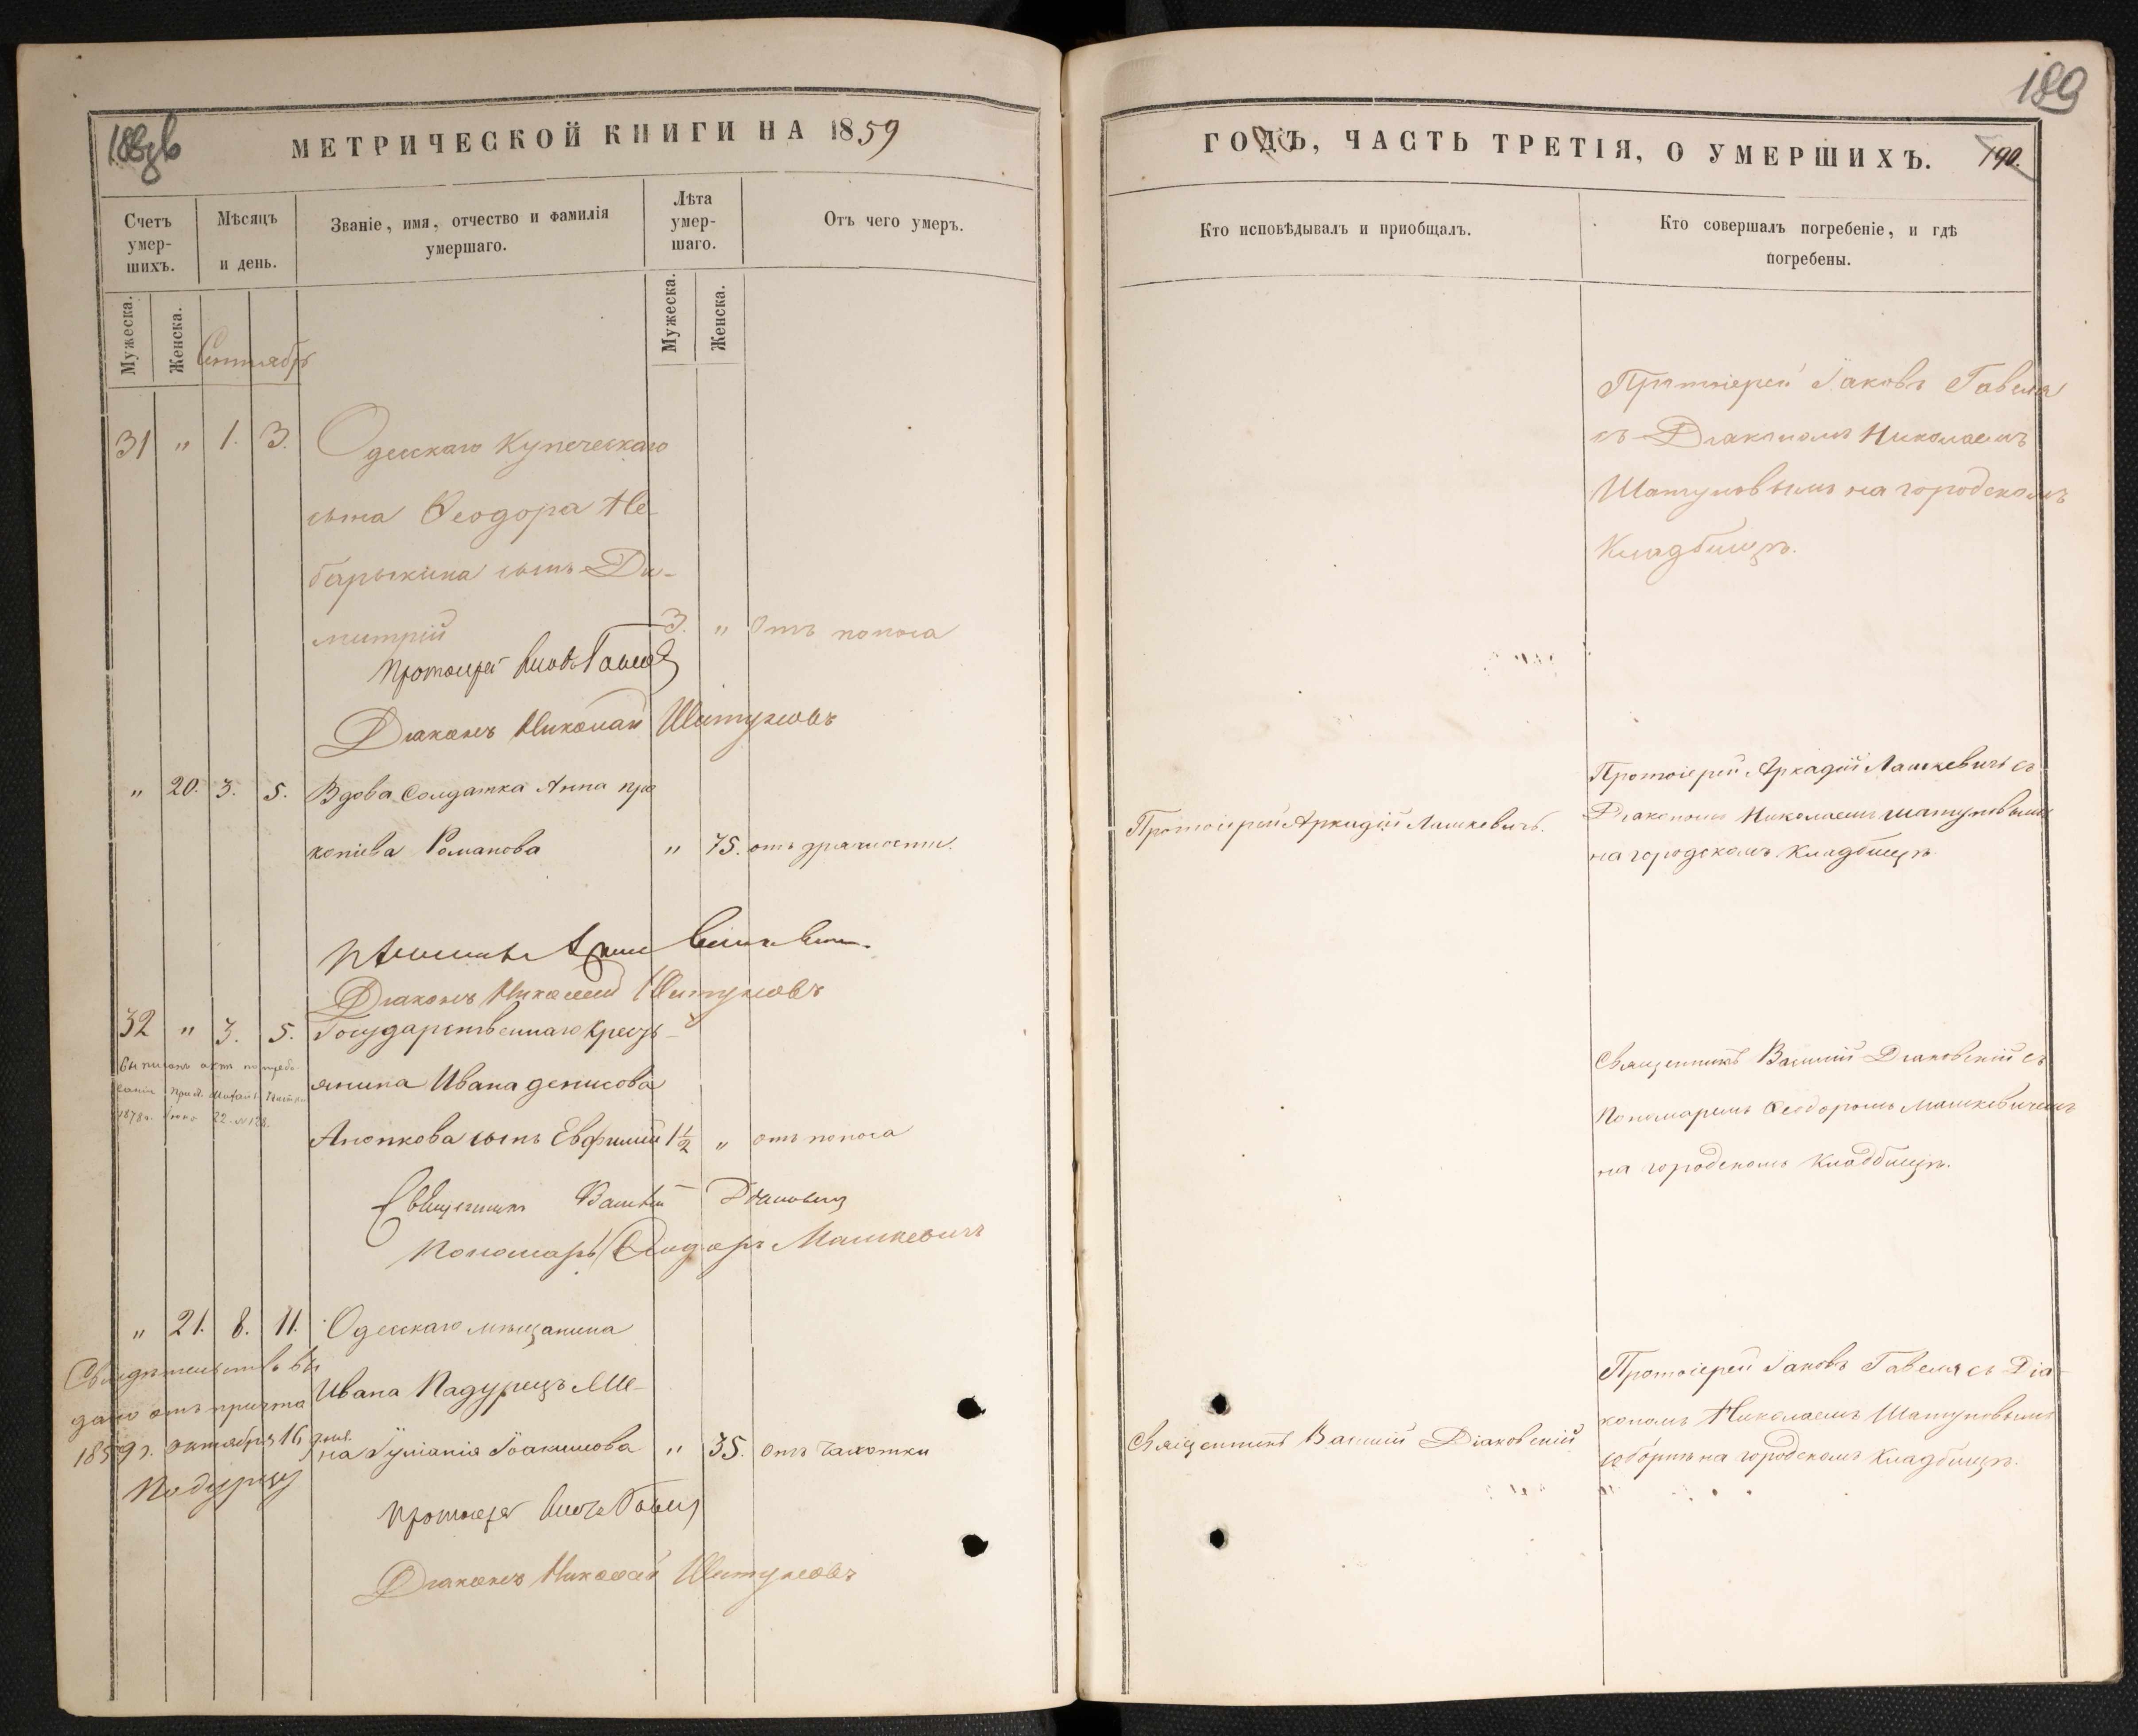 188
МЕТРИЧЕСКОЙ КНИГИ НА 1859
Счетъ умер-шихъ.
Мѣсяцъ и день.
Званіе, имя, отчество и фамилія умершаго.
Лѣта умер-шаго.
Отъ чего умеръ.
Мужеска.
Женска.
Мужеска.
Женска.
Сентябрь
31 " 1. 3. Одесскаго Купеческаго
сына Ѳеодора Не-
барыкина сынъ Ди-
митрій 3. " Отъ поноса
Протоіерей Іаковъ Гавеля
Діаконъ Николай Шатуновъ
" 20. 3. 5. Вдова Солдатка Анна про
копіева Романова " 75. отъ драхлости.
Діаконъ Николай Шатуновъ
32 " 3. 5. Государственнаго Кресть-
янина Ивана денисова
Анопкова сынъ Евфимій 1½ " отъ поноса
выписанъ актъ по требо-
1878 г. 22 № 128.
Священникъ Василій Діаковскій
Пономарь Ѳеодоръ Машкевичъ
" 21. 8. 11. Одесскаго мѣщанина
Ивана Падурецъ Же-
на Іуліанія Іоакимова " 35. отъ чахотки
Свидѣтельство вы
дано отъ причта
1859 г. октября 16 дня.
Падурецу
Протоіерей Іаковъ Гавеля
Діаконъ Николай Шатуновъ
189
ГОДЪ, ЧАСТЬ ТРЕТІЯ, О УМЕРШИХЪ.
190.
Кто исповѣдывалъ и пріобщалъ.
Кто совершалъ погребеніе, и гдѣ погребены.
Протоіерей Іаковъ Гавеля
съ Діакономъ Николаемъ
Шатуновымъ на городскомъ
Кладбищѣ.
Протоіерей Аркадій Лашкевичъ.
Протоіерей Аркадій Лашкевичъ съ
Діакономъ Николаемъ шатуновымъ
на городскомъ кладбищѣ
Священникъ Василій Діаковскій съ
Пономаремъ Ѳеодоромъ Машкевичемъ
на городскомъ Кладбищѣ.
Священникъ Василій Діаковскій
Протоіерей Іаковъ Гавеля съ Діа-
кономъ Николаемъ Шатуновымъ
соборнѣ на городскомъ Кладбищѣ.